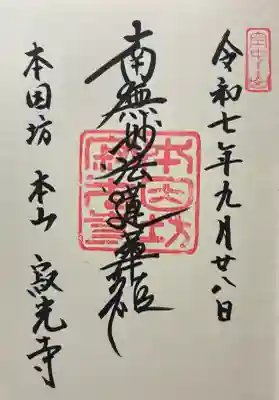 令和七年九月廿八日
南無妙法蓮華経
本因坊 本山 寂光寺